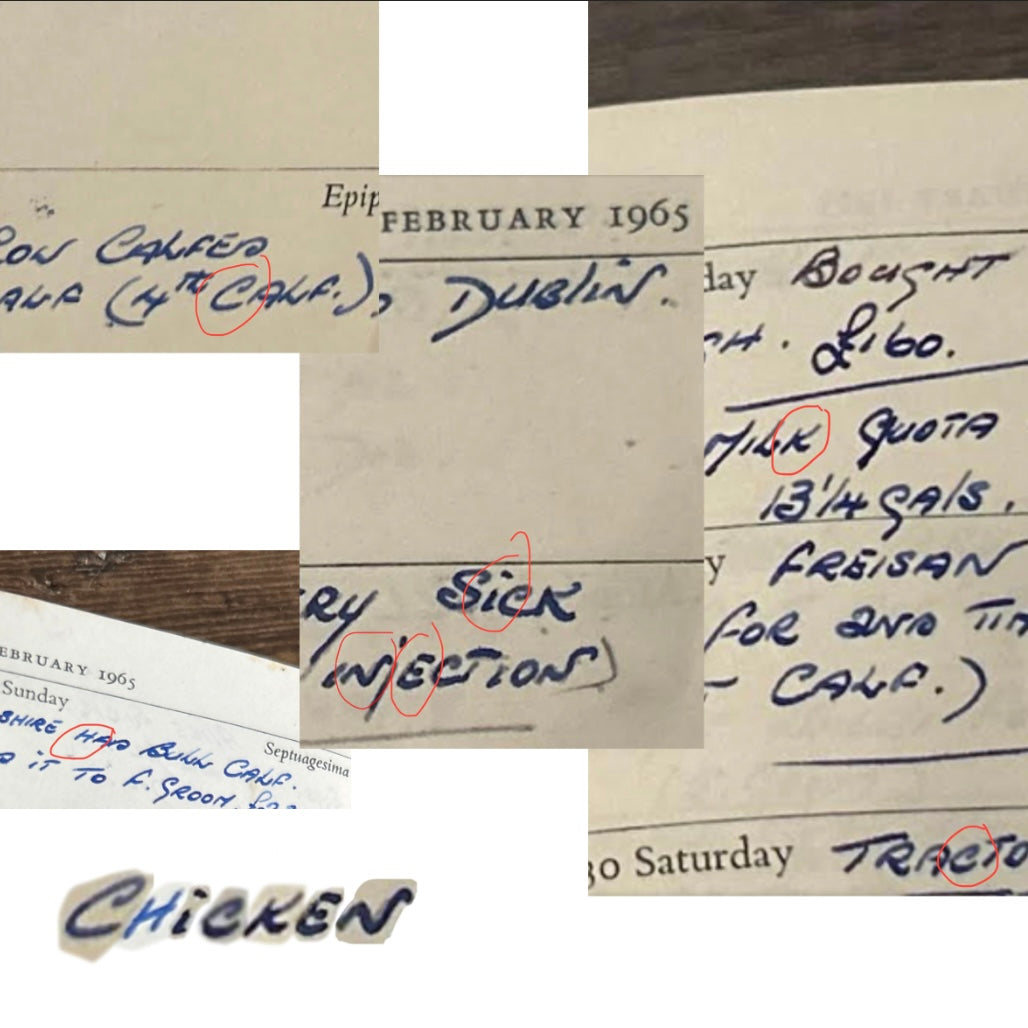 Epip
COW CALFED
ALF (4TH CALF.)
FEBRUARY 1965
DUBLIN.
RY SiCK
INJECTION)
day BOUGHT
H. £160.
MILK QUOTA
13 1/4 GAlS.
y FREISAN
FOR 2ND TIM
- CALF.)
30 Saturday TRACTO
EBRUARY 1965
Sunday
SHIRE HAD BULL CALF.
Septuagesima
D iT TO F. GROOM.
CHiCKEN